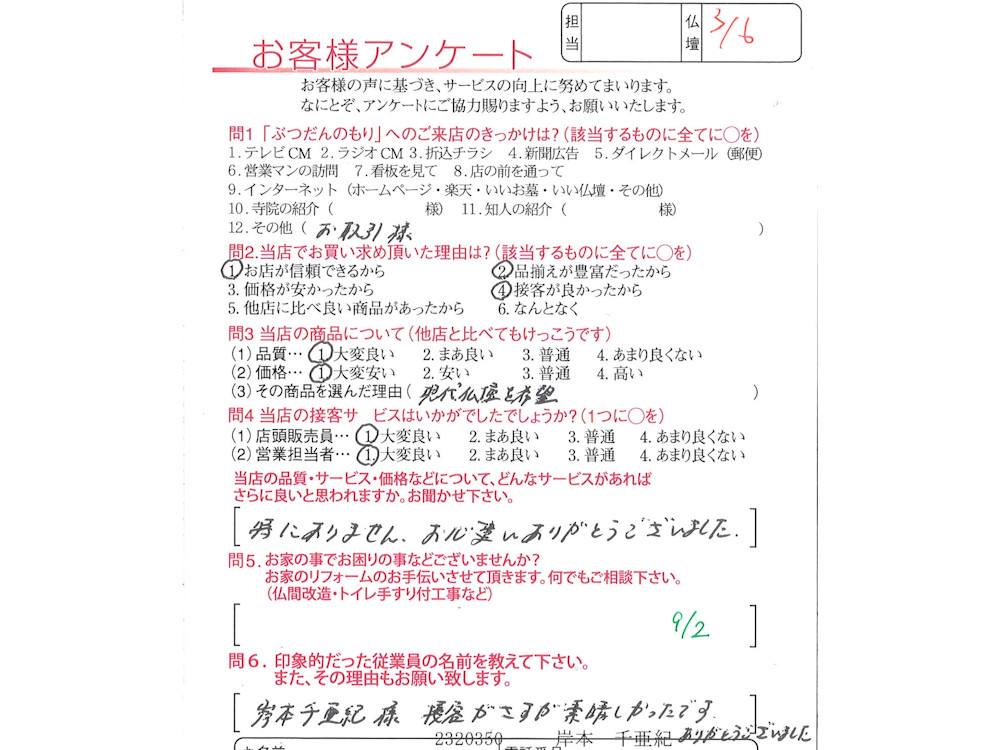 担当
仏壇
3/6
お客様アンケート
お客様の声に基づき、サービスの向上に努めてまいります。
なにとぞ、アンケートにご協力賜りますよう、お願いいたします。
問1 「ぶつだんのもり」へのご来店のきっかけは?(該当するものに全てに◯を)
1.テレビCM 2.ラジオCM 3.折込チラシ 4.新聞広告 5.ダイレクトメール (郵便)
6.営業マンの訪問 7.看板を見て 8.店の前を通って
9.インターネット (ホームページ・楽天・いいお墓・いい仏壇・その他)
10.寺院の紹介 ( 様) 11.知人の紹介 ( 様)
12.その他 ( お取引様 )
問2.当店でお買い求め頂いた理由は?(該当するものに全てに◯を)
1.お店が信頼できるから 2.品揃えが豊富だったから
3.価格が安かったから 4.接客が良かったから
5.他店に比べ良い商品があったから 6.なんとなく
問3 当店の商品について(他店と比べてもけっこうです)
(1)品質… 1.大変良い 2.まあ良い 3.普通 4.あまり良くない
(2)価格… 1.大変安い 2.安い 3.普通 4.高い
(3)その商品を選んだ理由( 現代仏壇を希望 )
問4 当店の接客サ ビスはいかがでしたでしょうか?(1つに◯を)
(1)店頭販売員… 1.大変良い 2.まあ良い 3.普通 4.あまり良くない
(2)営業担当者… 1.大変良い 2.まあ良い 3.普通 4.あまり良くない
当店の品質・サービス・価格などについて、どんなサービスがあれば
さらに良いと思われますか。お聞かせ下さい。
特にありません、お心遣いありがとうございました.
問5.お家の事でお困りの事などございませんか?
お家のリフォームのお手伝いさせて頂きます。何でもご相談下さい。
(仏間改造・トイレ手すり付工事など)
9/2
問6.印象的だった従業員の名前を教えて下さい。
また、その理由もお願い致します。
岸本千亜紀 様 接客がさすが素晴しかったです.
2320350 岸本 千亜紀 ありがとうございました
お名前 電話番号